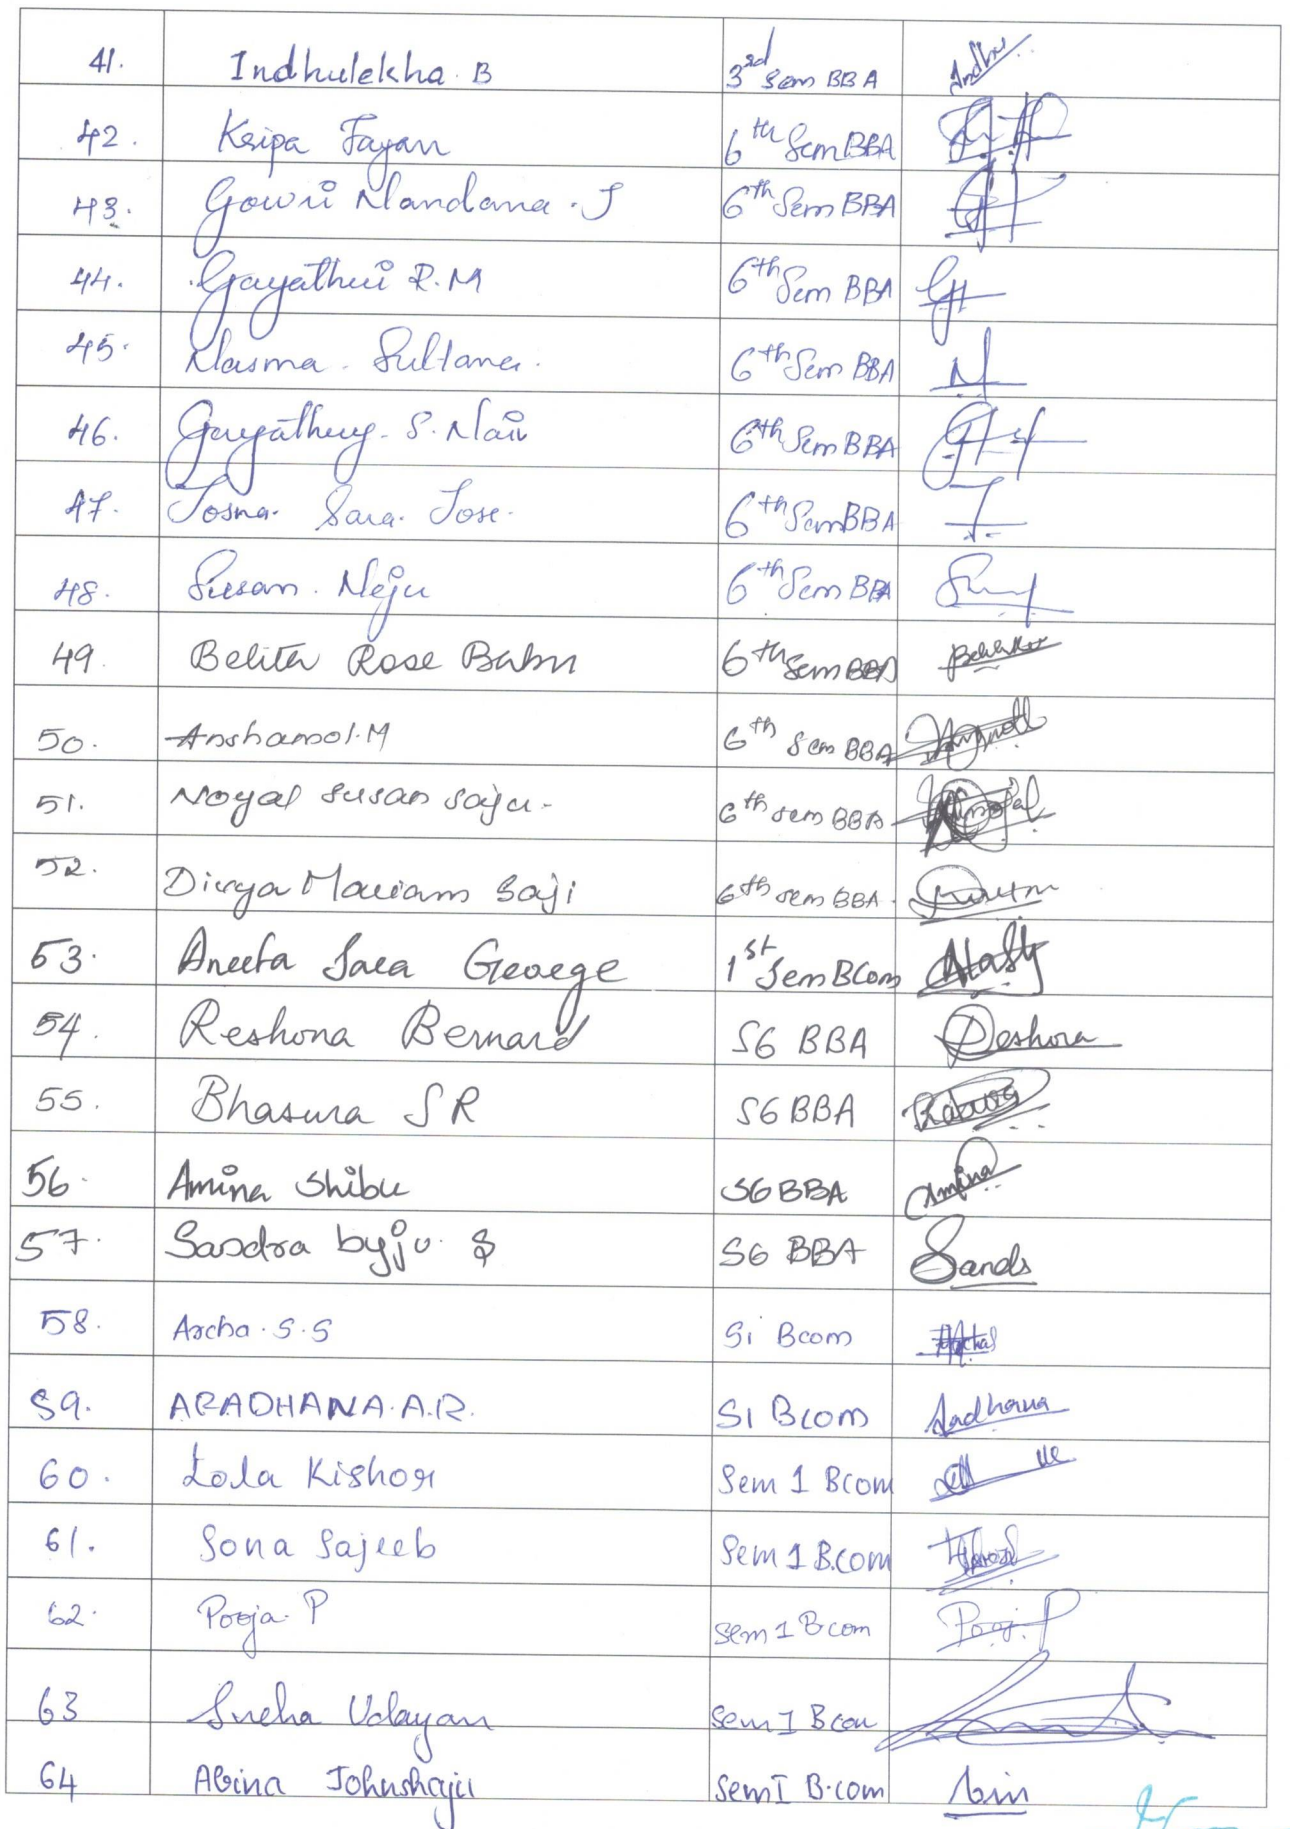 41. Indhulekha. B 3rd Sem BBA Indhu
42. Kripa Jayan 6th Sem BBA
43. Gowri Nandana. J 6th Sem BBA
44. Gayathri R.M 6th Sem BBA
45. Nasma. Sultana. 6th Sem BBA
46. Gayathry. S. Nair 6th Sem BBA
47. Josna. Sara. Jose. 6th Sem BBA
48. Susan. Neju 6th Sem BBA
49. Belita Rose Babu 6th Sem BBA
50. Anshamol. M 6th Sem BBA
51. Noyal Susan Saju. 6th Sem BBA
52. Divya Mariam Saji 6th Sem BBA
53. Aneeta Sara George 1st Sem BCom
54. Reshona Bernard S6 BBA Reshona
55. Bhasura S R S6 BBA
56. Amina Shibu S6 BBA Amina
57. Sandra byju S S6 BBA Sands
58. Archa. S. S Si Bcom
59. ARADHANA. A.R. S1 Bcom Aadhana
60. Lola Kishor Sem 1 Bcom
61. Sona Sajeeb Sem 1 B.com
62. Pooja. P Sem 1 Bcom Pooja P
63 Sneha Udayan Sem I Bcom
64 Abina Johnshaju Sem I B.com Abin